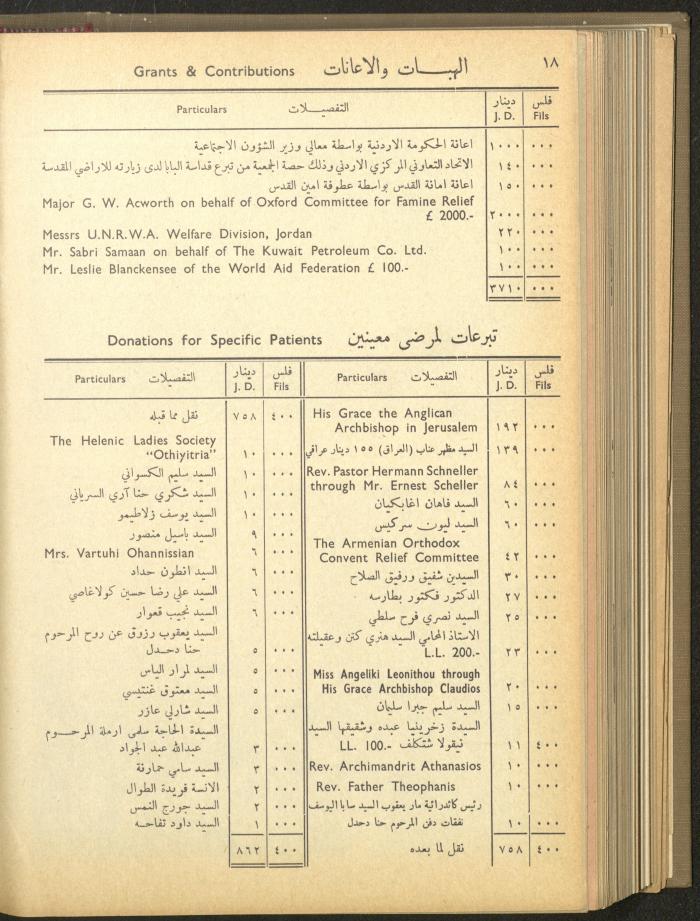 Grants & Contributions الهبــات والاعانات ١٨
Particulars التفصيــلات دينار J. D. فلس Fils
اعانة الحكومة الاردنية بواسطة معالي وزير الشؤون الاجتماعية ١٠٠٠ ٠٠٠
الاتحاد التعاوني المركزي الاردني وذلك حصة الجمعية من تبرع قداسة البابا لدى زيارته للاراضي المقدسة ١٤٠ ٠٠٠
اعانة امانة القدس بواسطة عطوفة امين القدس ١٥٠ ٠٠٠
Major G. W. Acworth on behalf of Oxford Committee for Famine Relief
£ 2000.- ٢٠٠٠ ٠٠٠
Messrs U.N.R.W.A. Welfare Division, Jordan ٢٢٠ ٠٠٠
Mr. Sabri Samaan on behalf of The Kuwait Petroleum Co. Ltd. ١٠٠ ٠٠٠
Mr. Leslie Blanckensee of the World Aid Federation £ 100.- ١٠٠ ٠٠٠
٣٧١٠ ٠٠٠
Donations for Specific Patients تبرعات لمرضى معينين
Particulars التفصيلات دينار J. D. فلس Fils
His Grace the Anglican
Archbishop in Jerusalem ١٩٢ ٠٠٠
السيد مظهر عناب (العراق) ١٥٥ دينار عراقي ١٣٩ ٠٠٠
Rev. Pastor Hermann Schneller
through Mr. Ernest Scheller ٨٤ ٠٠٠
السيد فاهان اغابكيان ٦٠ ٠٠٠
السيد ليون سركيس ٦٠ ٠٠٠
The Armenian Orthodox
Convent Relief Committee ٤٢ ٠٠٠
السيدين شفيق ورفيق الصلاح ٣٠ ٠٠٠
الدكتور فكتور بطارسه ٢٧ ٠٠٠
السيد نصري فرح سلطي ٢٥ ٠٠٠
الاستاذ المحامي السيد هنري كتن وعقيلته
L.L. 200.- ٢٣ ٠٠٠
Miss Angeliki Leonithou through
His Grace Archbishop Claudios ٢٠ ٠٠٠
السيد سليم جبرا سليمان ١٥ ٠٠٠
السيدة زخرينيا عبده وشقيقها السيد
نيقولا شتكلف LL. 100.- ١١ ٤٠٠
Rev. Archimandrit Athanasios ١٠ ٠٠٠
Rev. Father Theophanis ١٠ ٠٠٠
رئيس كاتدرائية مار يعقوب السيد سابا اليوسف
نفقات دفن المرحوم حنا دحدل ١٠ ٠٠٠
نقل لما بعده ٧٥٨ ٤٠٠
Particulars التفصيلات دينار J. D. فلس Fils
نقل مما قبله ٧٥٨ ٤٠٠
The Helenic Ladies Society
"Othiyitria" ١٠ ٠٠٠
السيد سليم الكسواني ١٠ ٠٠٠
السيد شكري حنا آري السرياني ١٠ ٠٠٠
السيد يوسف زلاطيمو ١٠ ٠٠٠
السيد باسيل منصور ٩ ٠٠٠
Mrs. Vartuhi Ohannissian ٦ ٠٠٠
السيد انطون حداد ٦ ٠٠٠
السيد علي رضا حسين كولاغاصي ٦ ٠٠٠
السيد نجيب قعوار ٦ ٠٠٠
السيد يعقوب رزوق عن روح المرحوم
حنا دحـدل ٥ ٠٠٠
السيد لمرار الياس ٥ ٠٠٠
السيد معتوق غنتيسي ٥ ٠٠٠
السيد شارلي عازر ٥ ٠٠٠
السيدة الحاجة سلمى ارملة المرحـــوم
عبدالله عبد الجواد ٣ ٠٠٠
السيد سامي حمارنة ٣ ٠٠٠
الانسة فريدة الطوال ٢ ٠٠٠
السيد جورج النمس ٢ ٠٠٠
السيد داود تفاحـه ١ ٠٠٠
٨٦٢ ٤٠٠